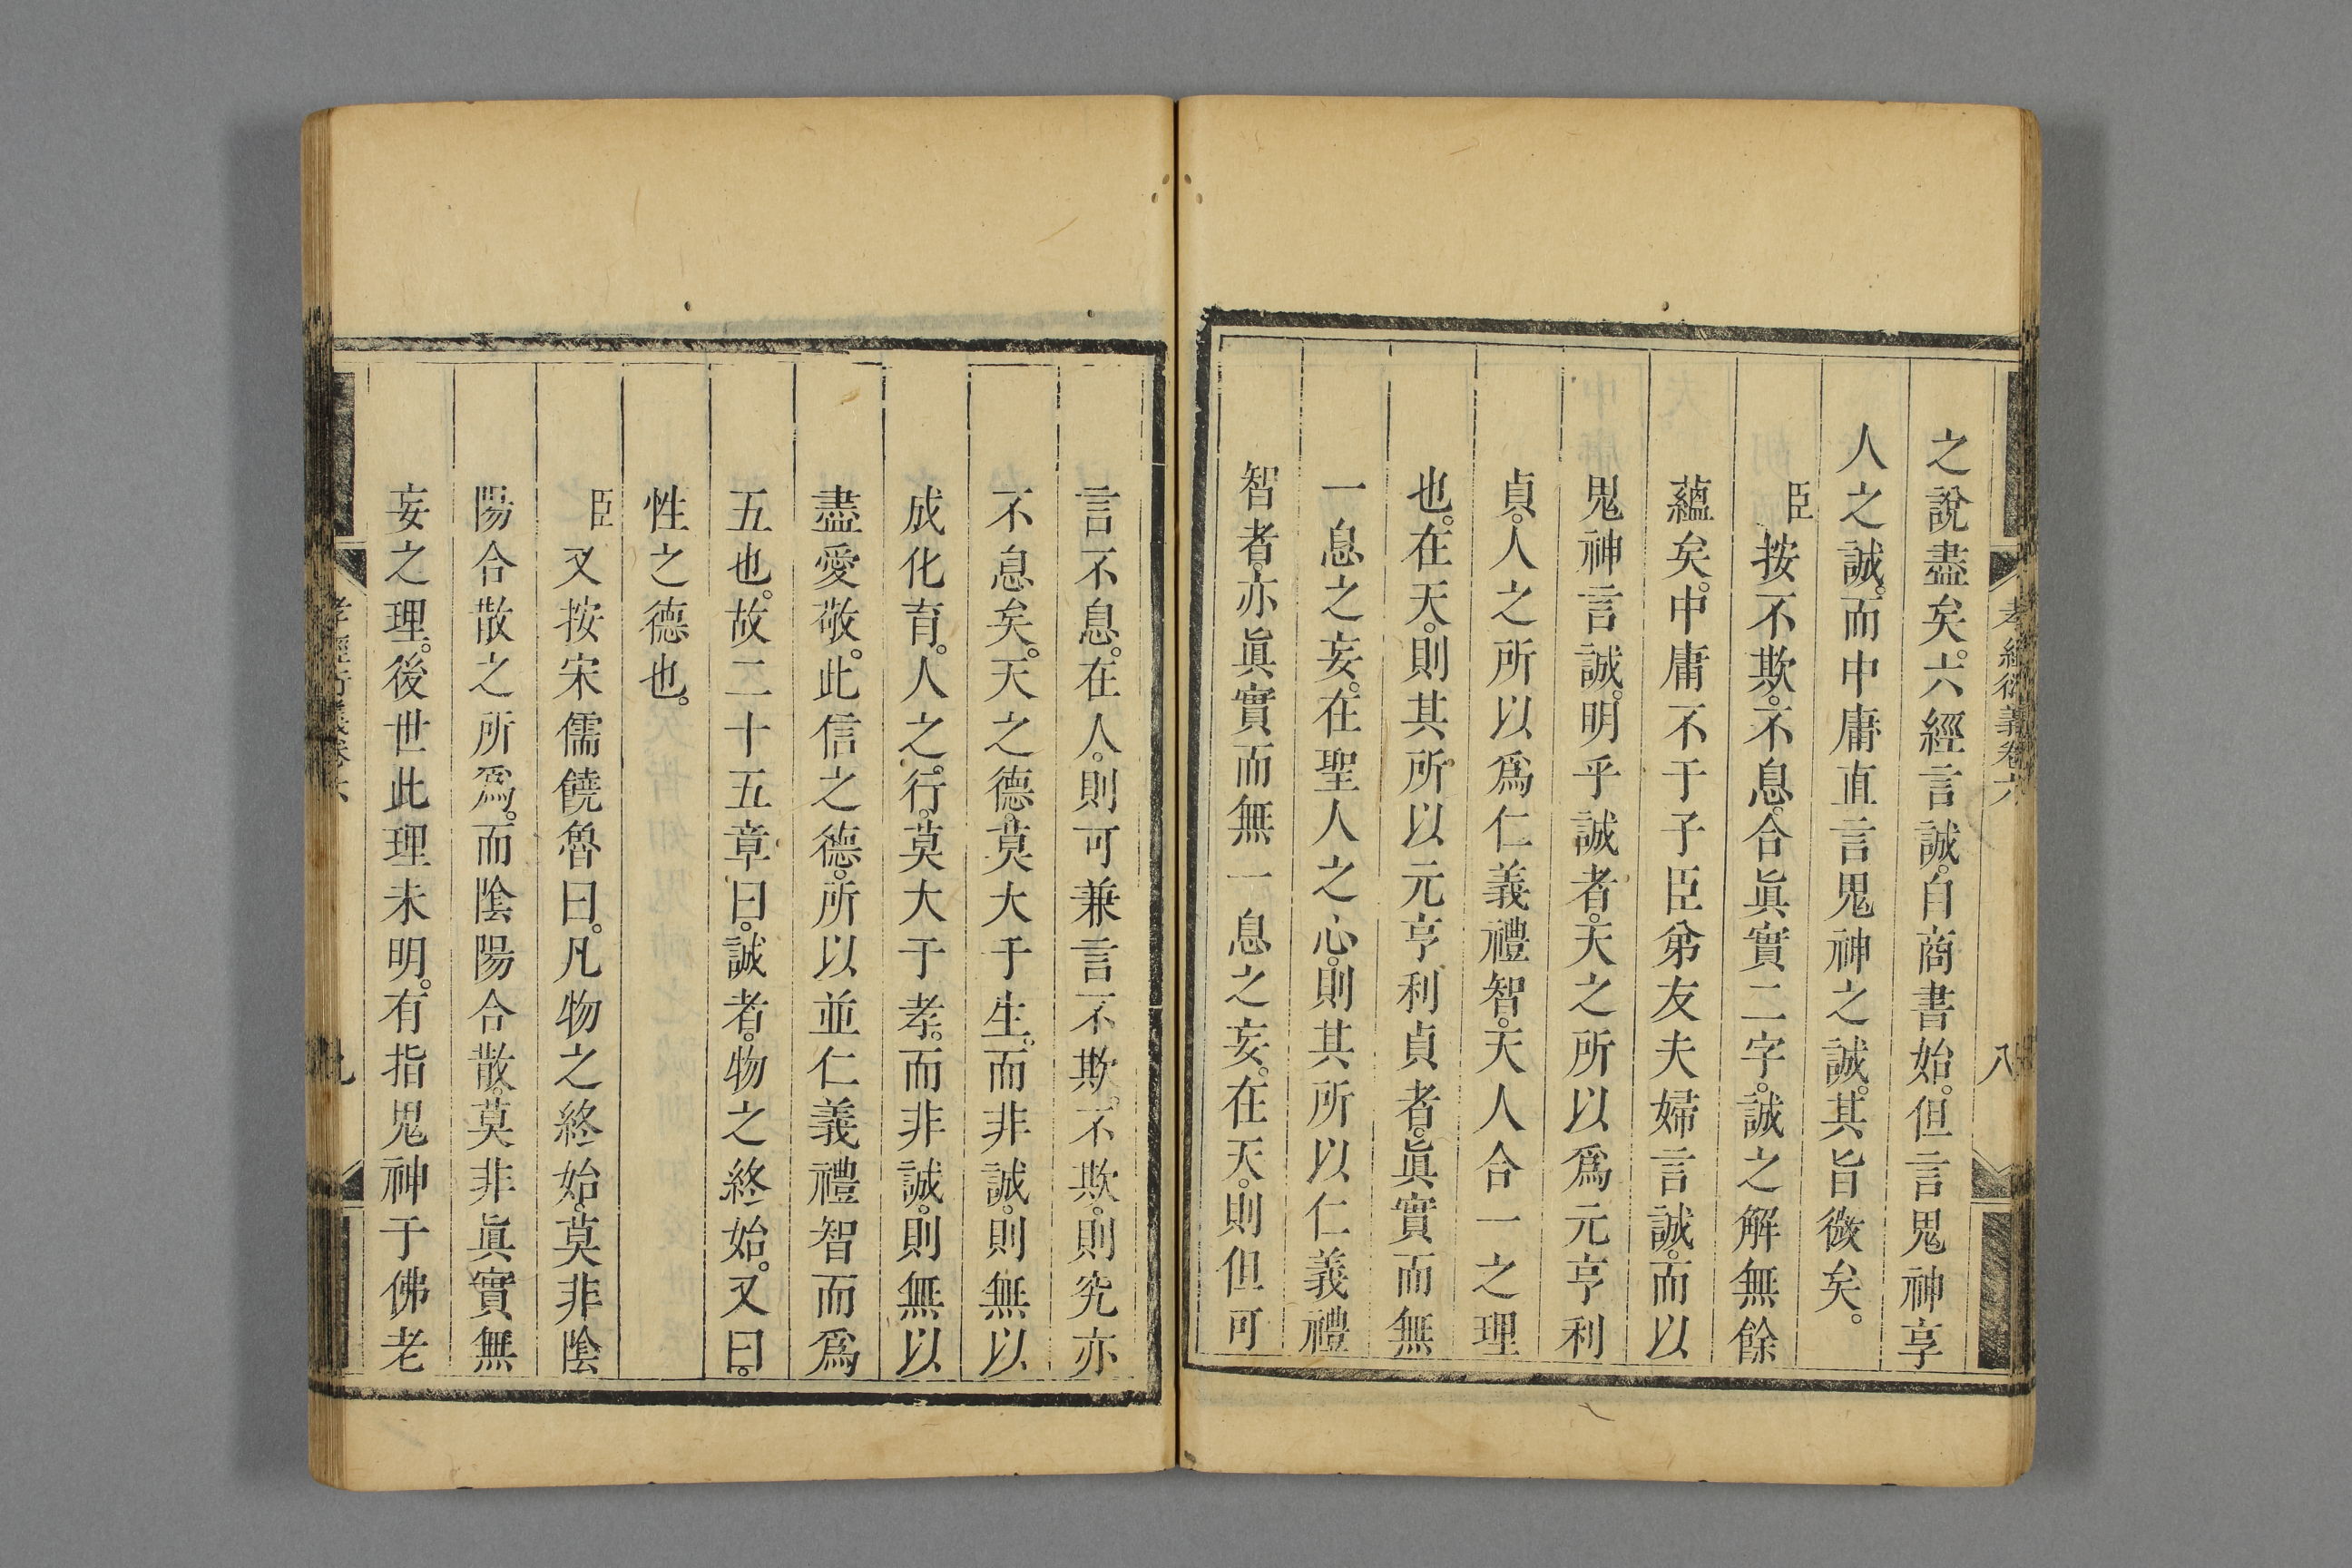 孝經衍義卷六
八
之說盡矣。六經言誠。自商書始。但言鬼神享
人之誠。而中庸直言鬼神之誠。其旨微矣。
臣按不欺。不息。合眞實二字。誠之解無餘
蘊矣。中庸不于子臣弟友夫婦言誠。而以
鬼神言誠。明乎誠者。天之所以爲元亨利
貞。人之所以爲仁義禮智。天人合一之理
也。在天。則其所以元亨利貞者。眞實而無
一息之妄。在聖人之心。則其所以仁義禮
智者。亦眞實而無一息之妄。在天。則但可
言不息。在人。則可兼言不欺。不欺。則究亦
不息矣。天之德。莫大于生。而非誠。則無以
成化育。人之行。莫大于孝。而非誠。則無以
盡愛敬。此信之德。所以並仁義禮智而爲
五也。故二十五章曰。誠者。物之終始。又曰。
性之德也。
臣又按宋儒饒魯曰。凡物之終始。莫非陰
陽合散之所爲。而陰陽合散。莫非眞實無
妄之理。後世此理未明。有指鬼神于佛老
孝經衍義卷六
九